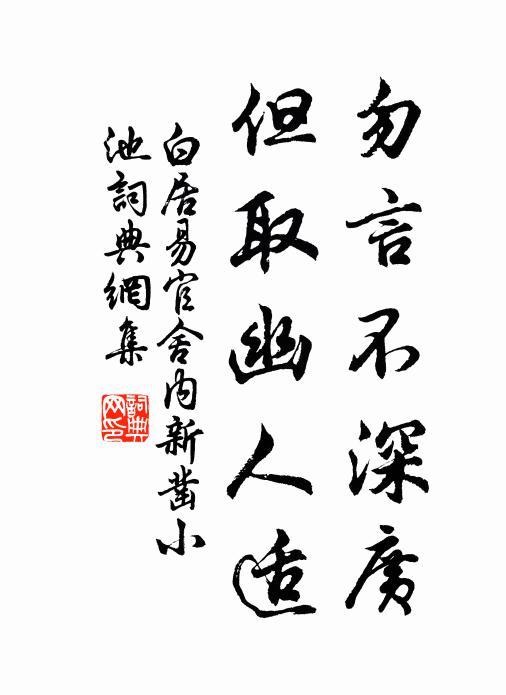 勿言不深廣
但取幽人适
白居易官舍内新凿小
池詞典網集
詞典
网印